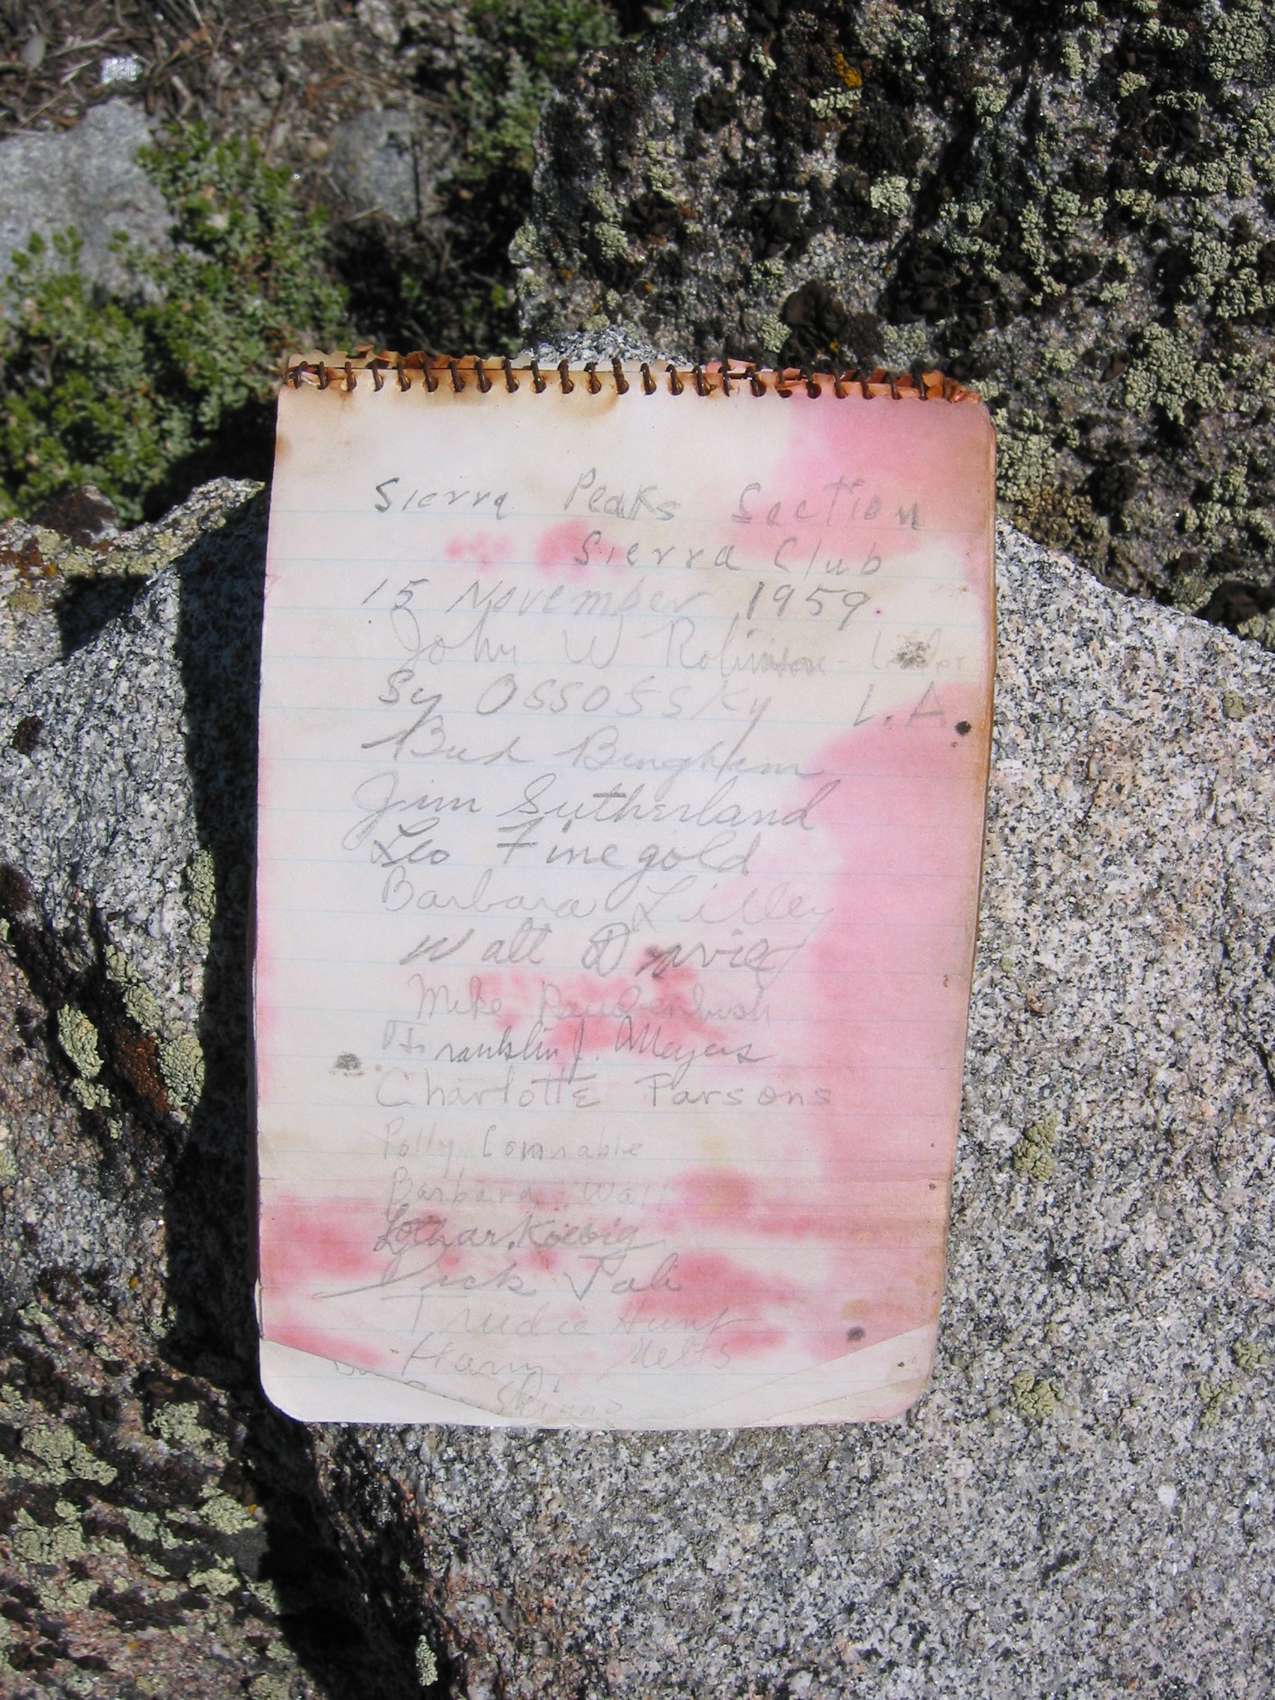 Sierra Peaks Section
Sierra Club
15 November 1959.
John W Robinson - Leader
Sy Ossofsky L.A.
Bud Bingham
Jim Sutherland
Leo Finegold
Barbara Lilley
Walt
Mike
Franklin J. Meyers
Charlotte Parsons
Polly Connable
Barbara
Lothar Koebig
Dick Jali
Trudie Hunt
Harry